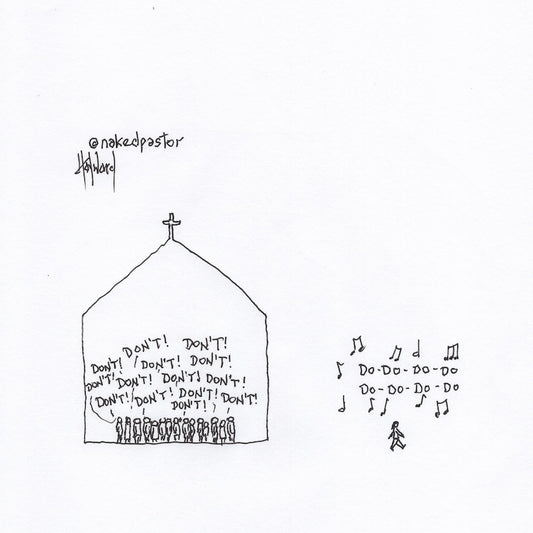 @nakedpastor
Hayward
DON'T! DON'T!
DON'T! DON'T! DON'T!
DON'T! DON'T! DON'T! DON'T!
DON'T! DON'T! DON'T! DON'T!
DON'T!
DO-DO-DO-DO
DO-DO-DO-DO